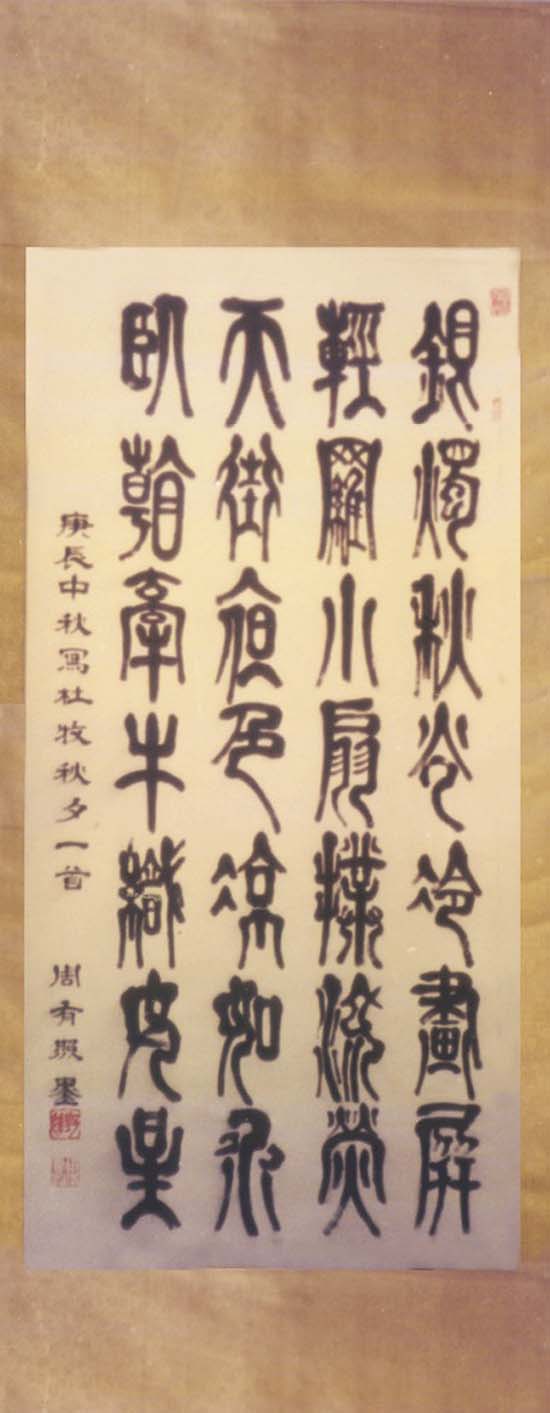 銀燭秋光冷畫屏
輕羅小扇撲流熒
天街夜色涼如水
臥看牽牛織女星
庚辰中秋寫杜牧秋夕一首
周有墨